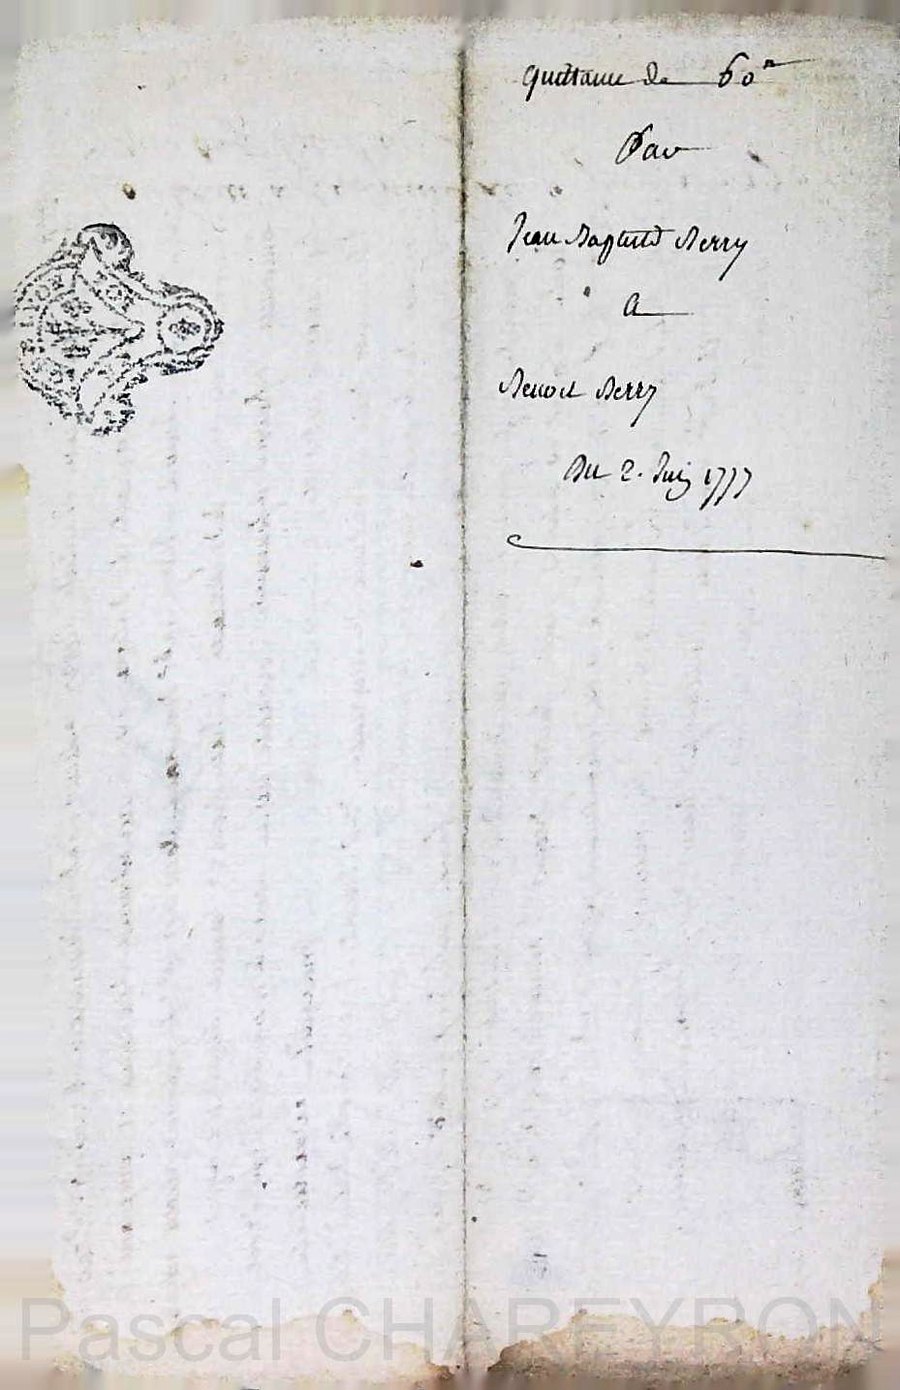 quittance de 60ᵗᵗ
Par
Jean Baptiste Berry
A
Benoit Berry
Du 2. Juin 1777
Pascal CHAREYRON